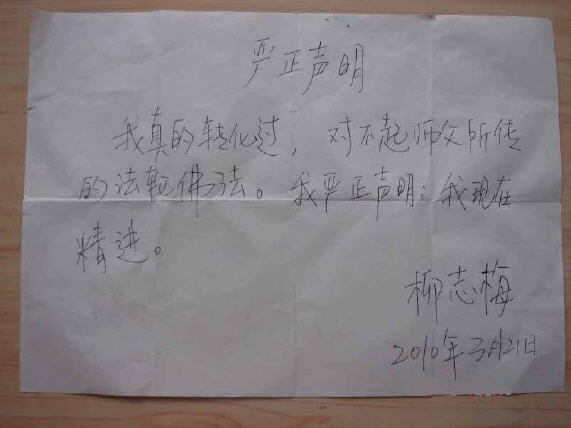 严正声明
我真的转化过，对不起师父所传
的法轮佛法。我严正声明：我现在
精进。
柳志梅
2010年3月21日